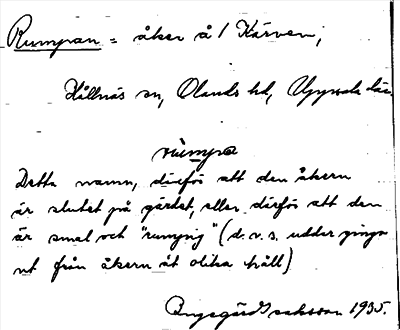 Rumpan = åker å / Kärven,
Hållnäs sn, Olands hd, Uppsala län
rùmpa
Detta namn, därför att den åkern
är slutet på gärdet, eller därför att den
är smal och "rumpig" (d.v.s. uddar gingo
ut från åkern åt olika håll)
1935.